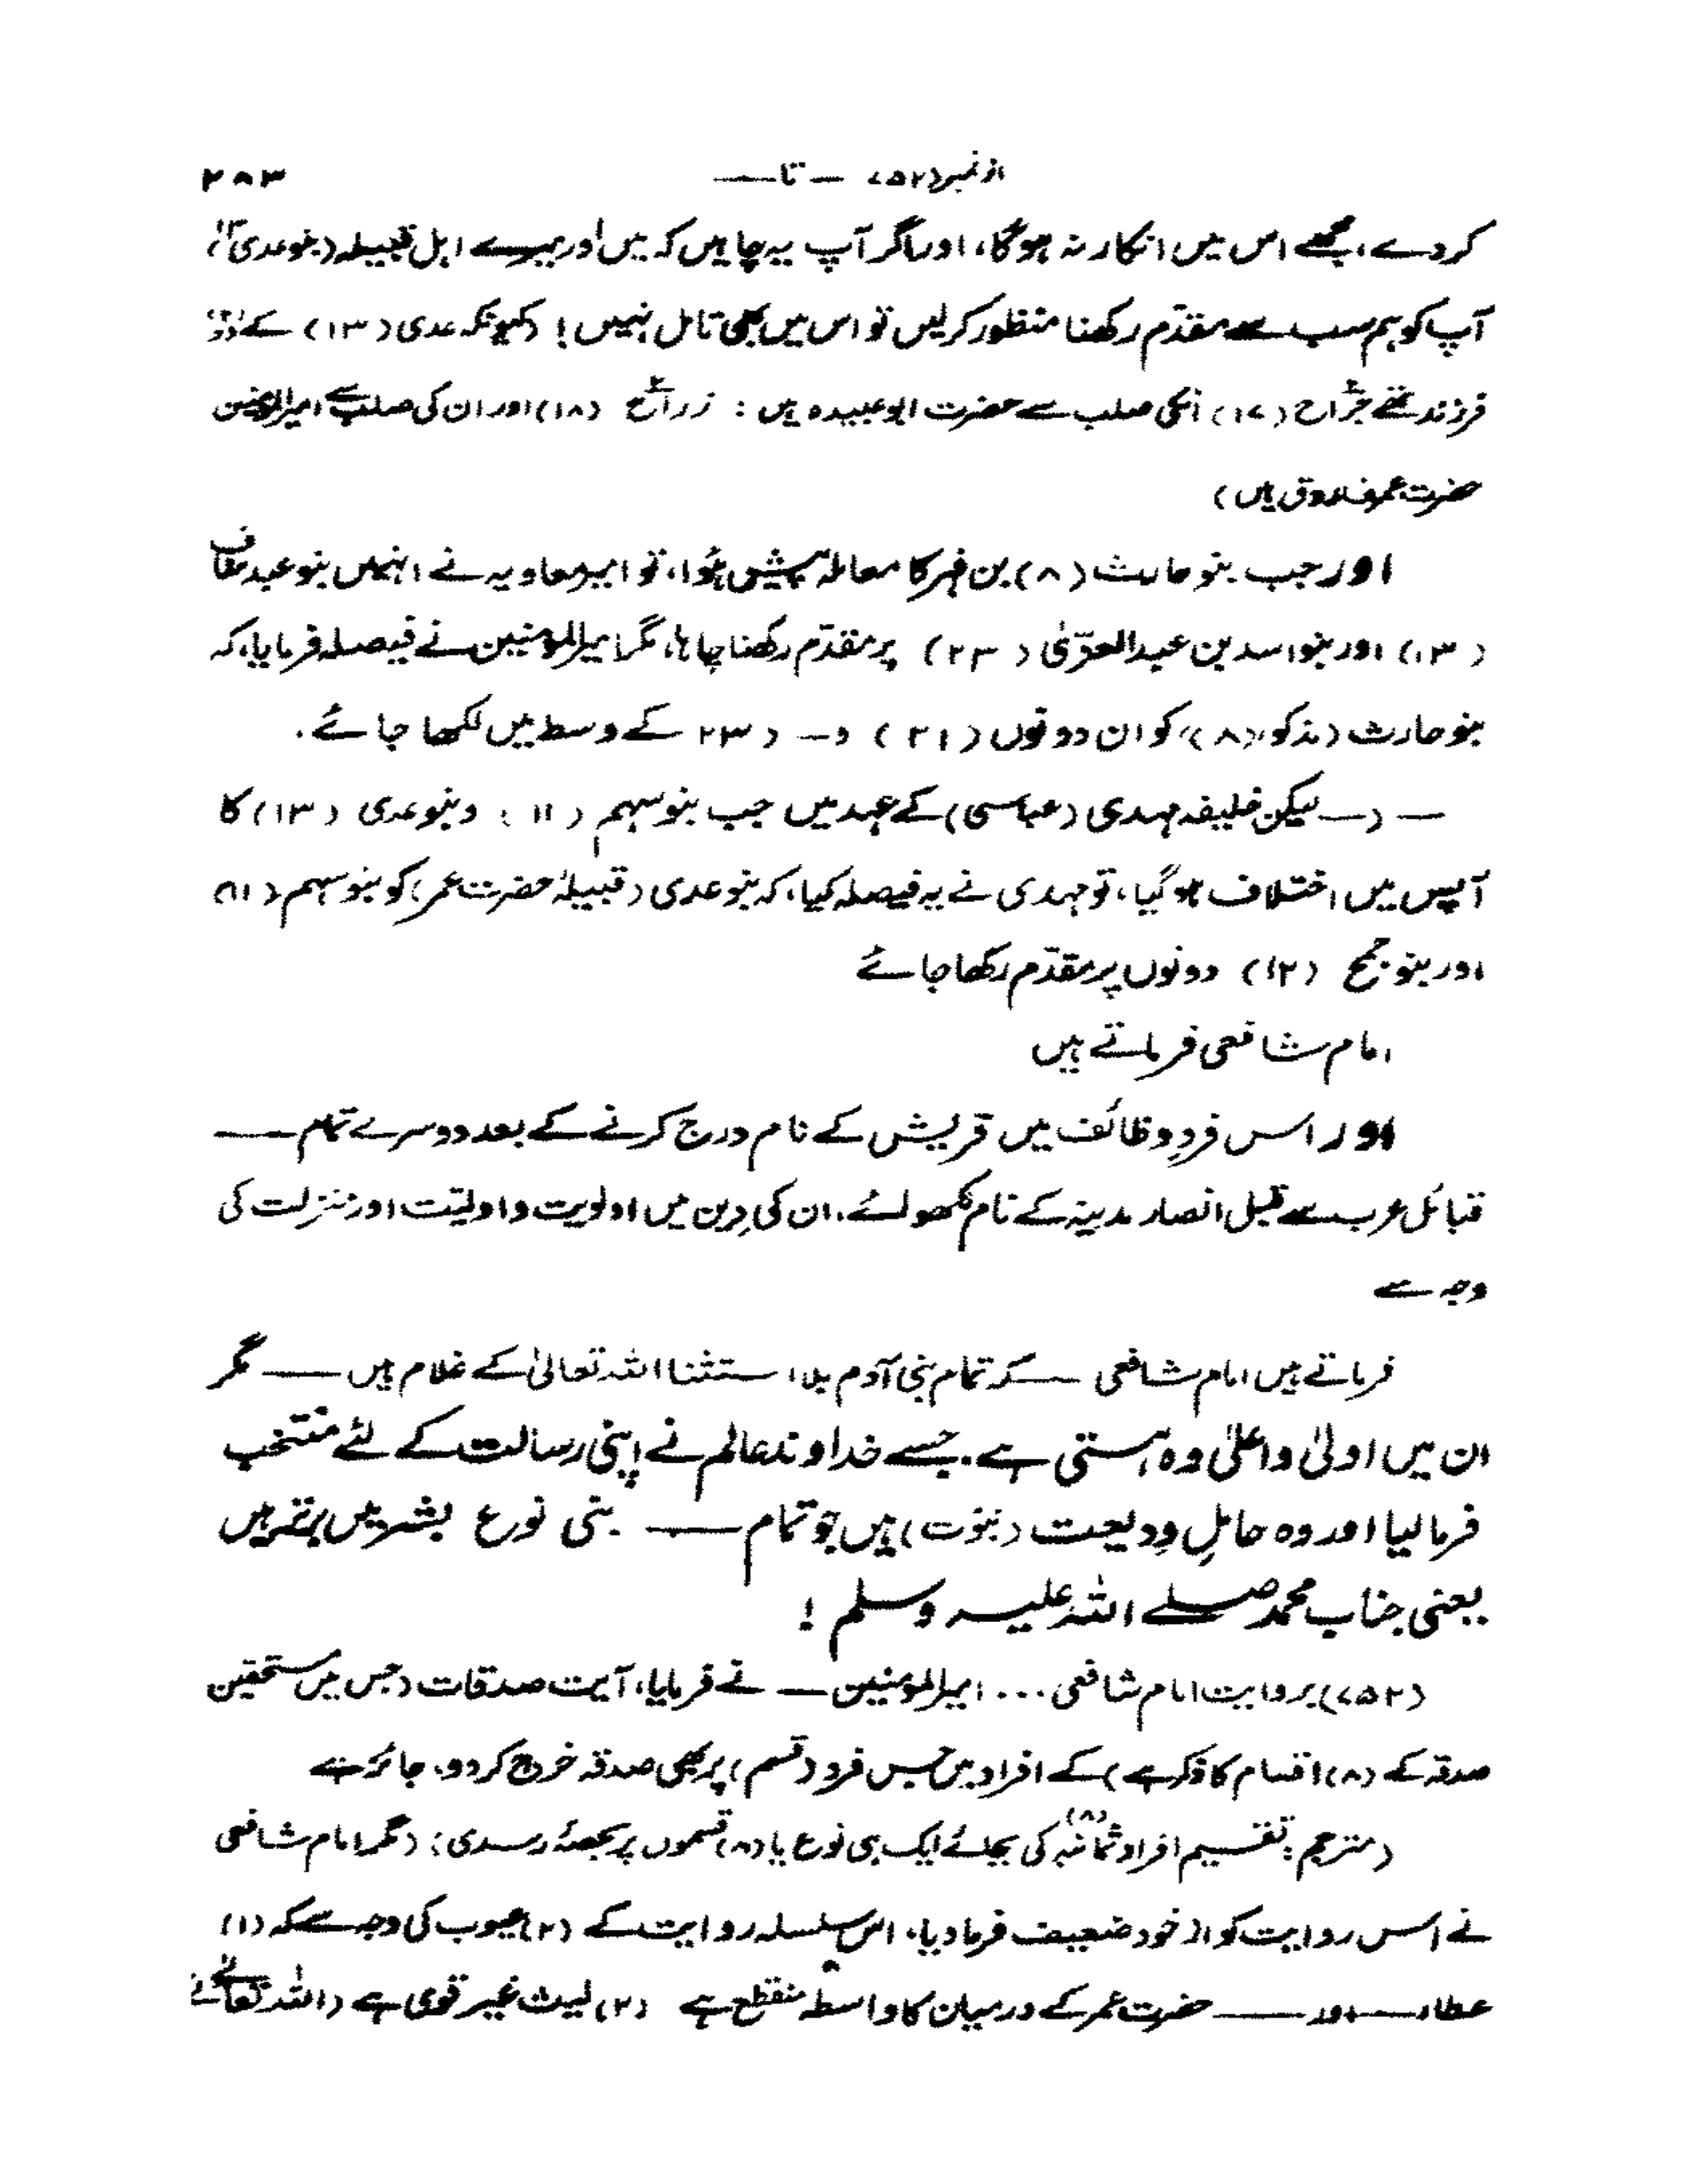 از نمبر (۷۵۲) — تا — ۲۸۳
کردے، مجھے اس میں انکار نہ ہوگا، اور اگر آپ یہ چاہیں کہ میں اور میرے اہل قبیلہ (بنو عدی
آپ کو ہم سب سے مقدّم رکھنا منظور کرلیں تو اس میں بھی تامل نہیں! (کیونکہ عدی (۱۳) کے دو
فرزند تھے جرّاح (۱۷) انکی صلب سے حضرت ابو عبیدہ ہیں : زراح (۱۸) اور ان کی صلب سے امیرالمومنین
حضرت عمر فاروق ہیں)
اور جب بنو حارث (۸) بن فہر کا معاملہ پیش ہُوا، تو امیر معاویہ نے انہیں بنو عبد مناف
(۱۳) اور بنو اسد بن عبد العزّیٰ (۲۳) پر مقدّم رکھنا چاہا، مگر امیرالمؤمنین نے فیصلہ فرمایا، کہ
بنو حارث (مذکور (۸)) کو ان دونوں (۲۱) و — (۲۳ کے وسط میں لکھا جائے۔
— (— لیکن خلیفہ مہدی (عباسی) کے عہد میں جب بنو سہم (۱۱) و بنو عدی (۱۳) کا
آپس میں اختلاف ہوگیا، تو مہدی نے یہ فیصلہ کیا، کہ بنو عدی (قبیلۂ حضرت عمر) کو بنو سہم (۱۱)
اور بنو جمح (۱۲) دونوں پر مقدّم رکھا جائے
امام شافعی فرماتے ہیں
اور اس فردِ وظائف میں قریش کے نام درج کرنے کے بعد دوسرے تمام —
قبائل عرب سے قبل انصار مدینہ کے نام لکھوائے، ان کی دِین میں اولویت و اولیّت اور منزلت کی
وجہ سے
فرماتے ہیں امام شافعی — کہ تمام بنی آدم بلا استثنا اللہ تعالیٰ کے غلام ہیں — مگر
ان میں اولیٰ و اعلیٰ وہ ہستی ہے۔ جسے خداوند عالم نے اپنی رسالت کے لئے منتخب
فرمالیا اور وہ حاملِ ودیعت (نبوّت) ہیں جو تمام — بنی نوع بشر میں بہتر ہیں
یعنی جناب محمد صلے اللہ علیہ وسلم !
(۷۵۲) بروایت امام شافعی ... امیرالمؤمنین — نے فرمایا، آیت صدقات (جس میں مستحقین
صدقہ کے (۸) اقسام کا ذکر ہے) کے افراد میں جس فرد (قسم) پر بھی صدقہ خرچ کردو، جائز ہے
(مترجم : تقسیم افراد ثمانیہ (۸) کی بجائے ایک ہی نوع یا (۸) قسموں پر بحصۂ رسدی؛ (مگر امام شافعی
نے اس روایت کو از خود ضعیف فرما دیا، اس سلسلہ روایت کے (۲) عیوب کی وجہ سے کہ (۱)
عطار — اور — حضرت عمر کے درمیان کا واسطہ منقطع ہے (۲) لیث غیر قوی ہے (اللہ تعالےٰ